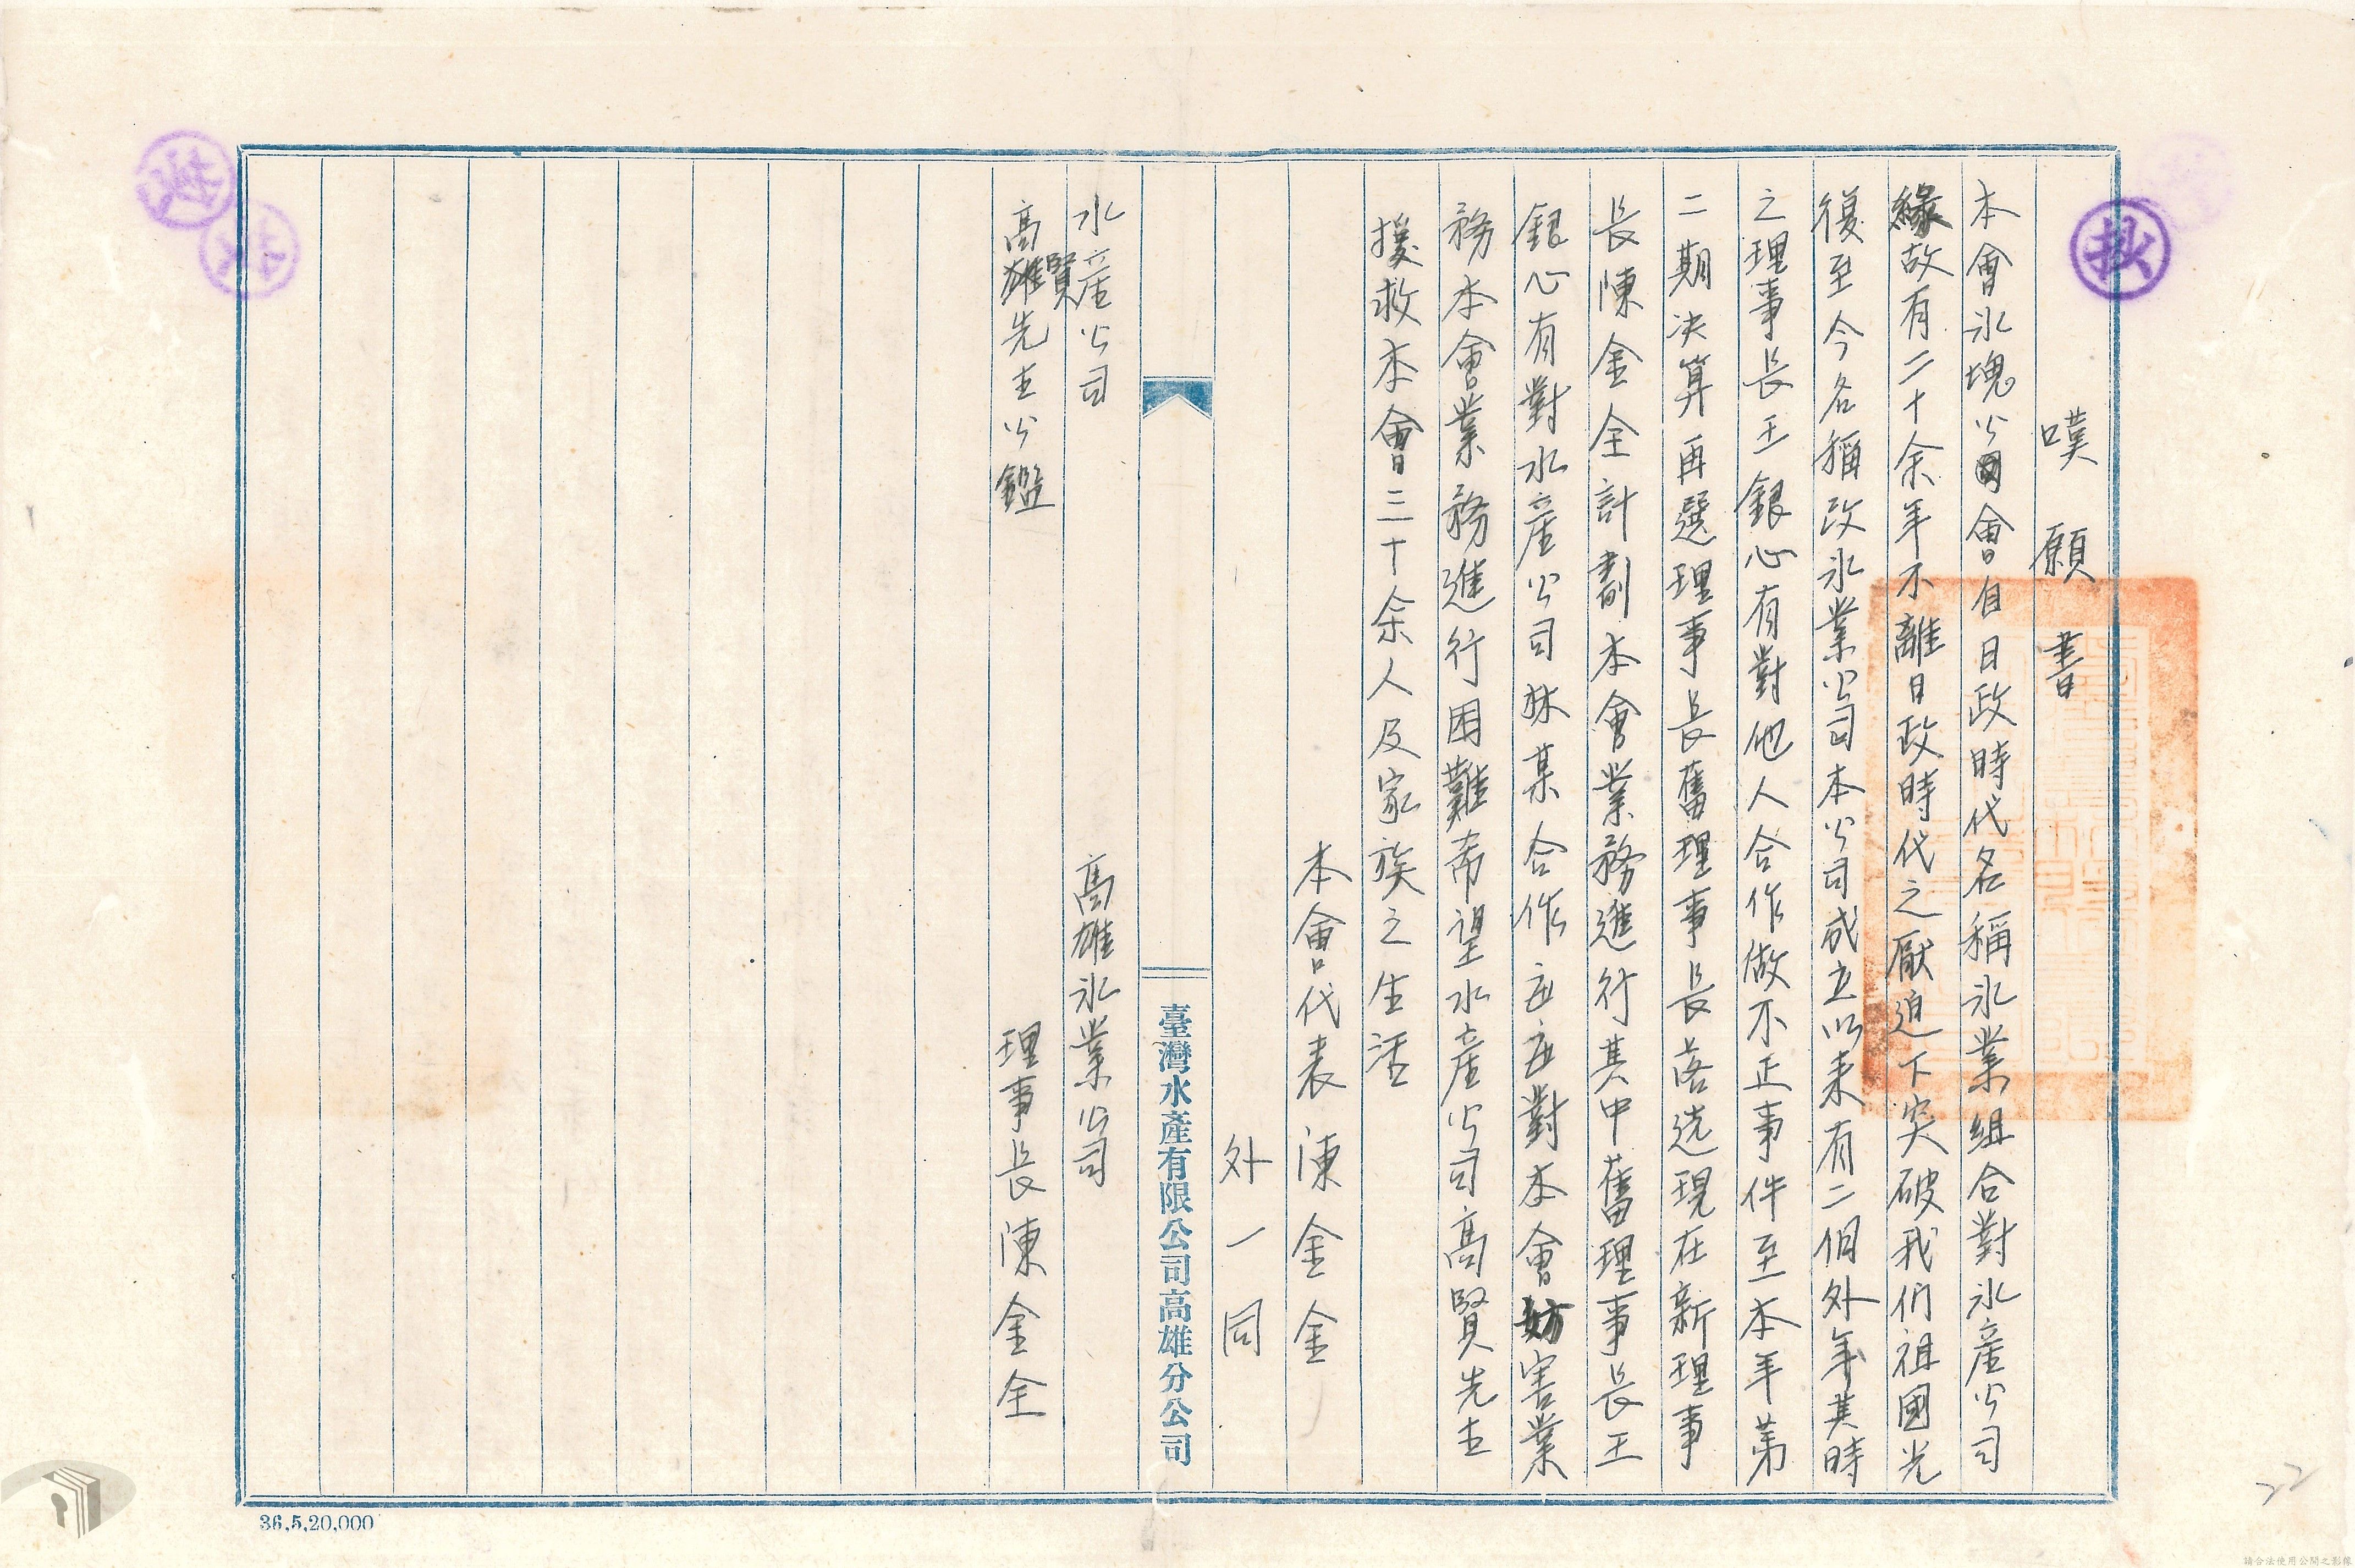 嘆願書
本會氷塊公會自日政時代名稱氷業組合對氷產公司
緣故有二十余年不離日政時代之厭迫下突破我们祖國光
復至今名稱改氷業公司本公司成立以来有二個外年其時
之理事長王銀心有對他人合作做不正事件至本年第
二期決算再選理事長舊理事長落选現在新理事
長陳金全計劃本會業務進行其中舊理事長王
銀心有對水產公司林某合作
對本會妨害業
務本會業務進行困難希望水產公司高賢先生
援救本會三十余人及家族之生活
本會代表陳金全
外一同
臺灣水產有限公司高雄分公司
水產公司
高雄賢先生公鑑
高雄氷業公司
理事長陳金全
抄
36,5,20,000
22
請合法使用公開之影像